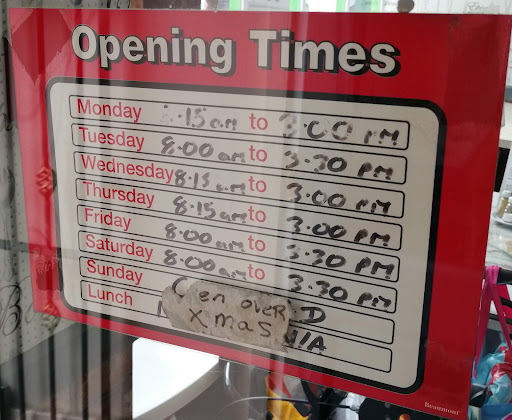 Opening Times
Monday 8.15am to 3.00 PM
Tuesday 8.00am to 3.30 PM
Wednesday 8.15am to 3.00 PM
Thursday 8.15am to 3.00 PM
Friday 8.00am to 3.30 PM
Saturday 8.00am to 3.30 PM
Sunday
en oveR
Xmas
Lunch N/A
Beaumont